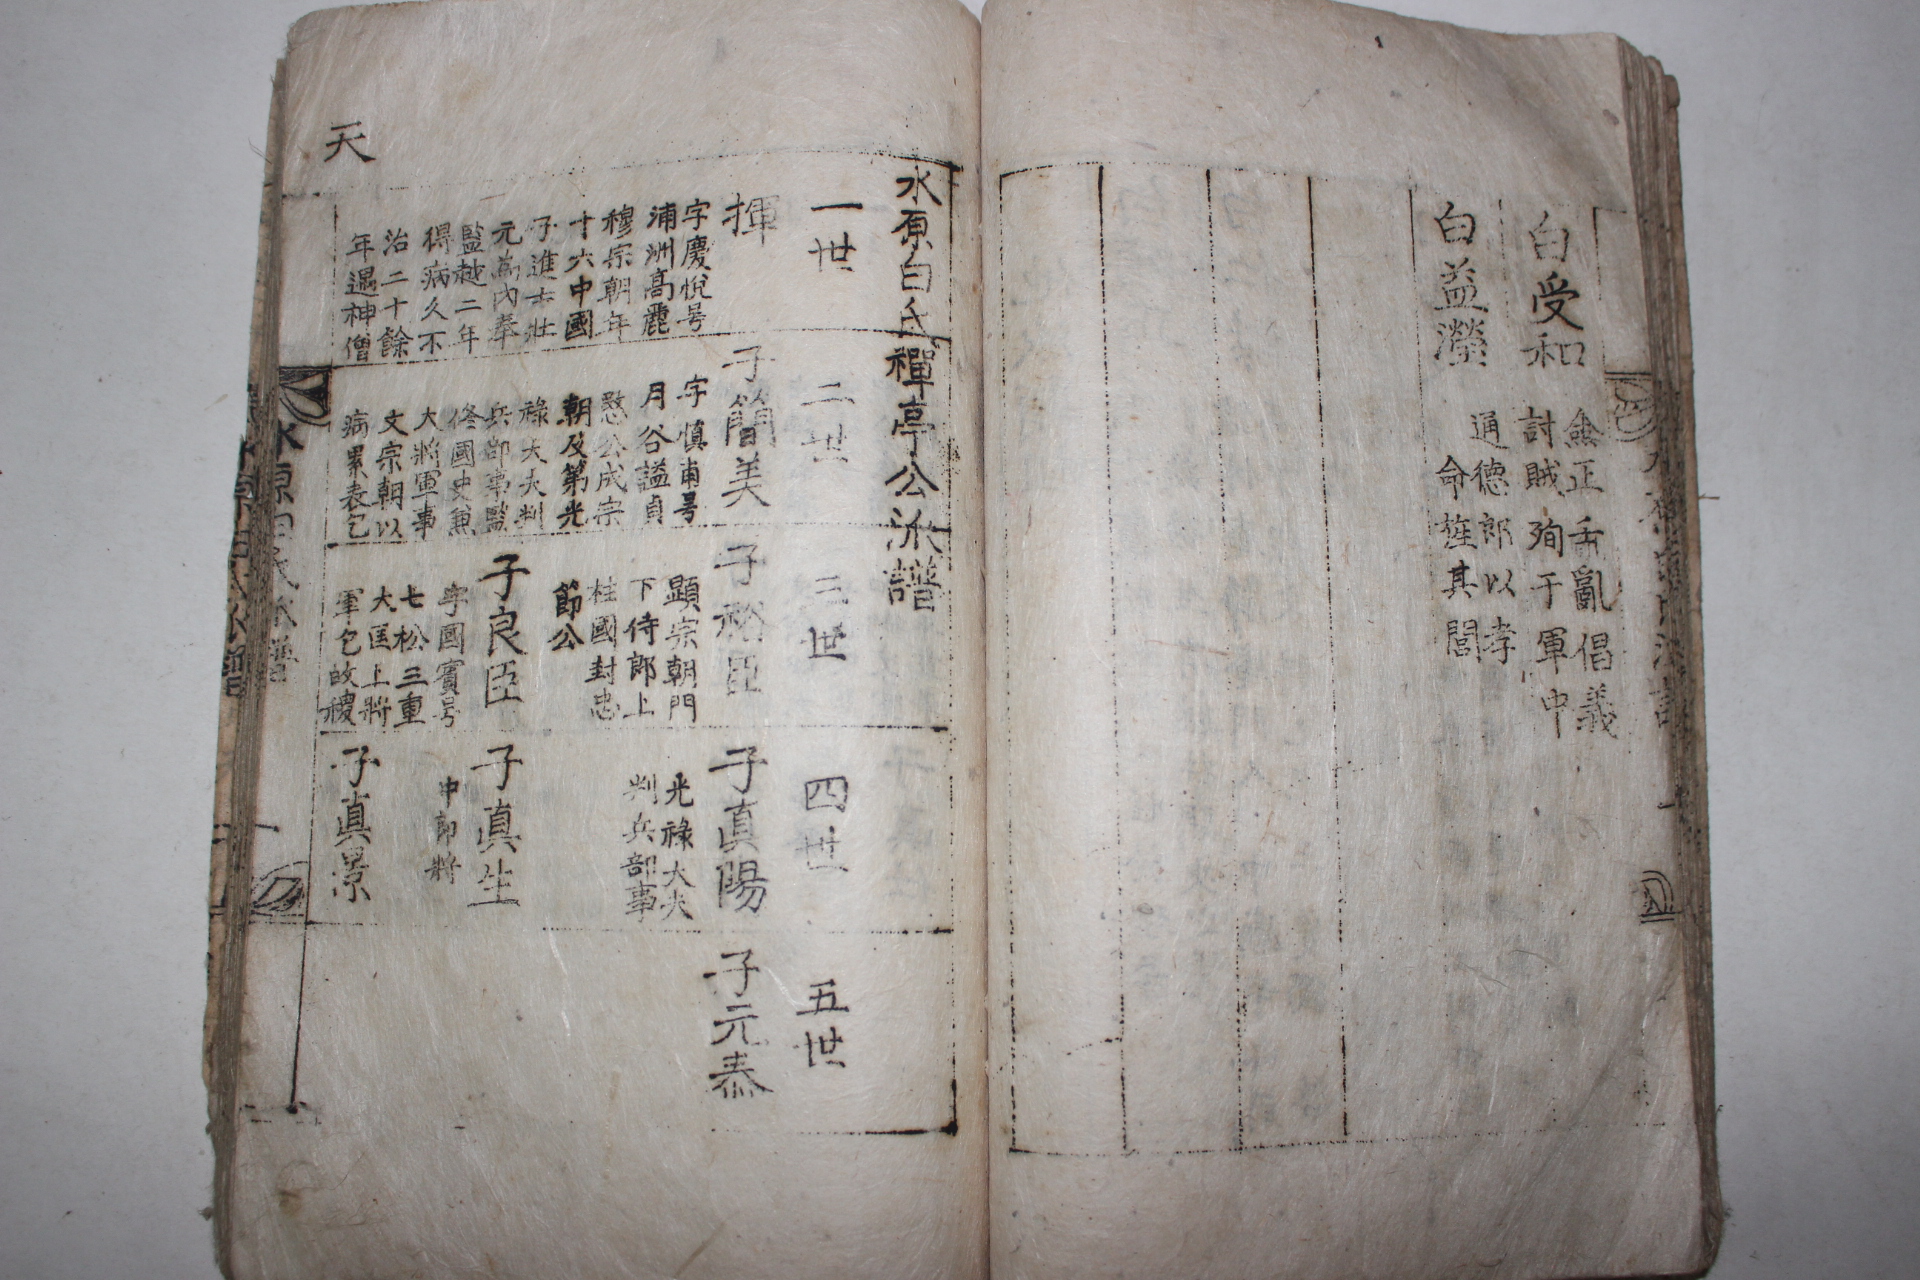 白受和
僉正壬亂倡義
討賊殉于軍中
白益瀅
通德郎以孝
命旌其閭
水原白氏禪亭公派譜
一世
揮
字慶悅号
浦洲高麗
穆宗朝年
十六中國
子進士壯
元爲內奉
監越二年
得病久不
治二十餘
年遇神僧
天
二世
子簡美
字愼甫号
月谷謚貞
愍公成宗
朝及第光
祿大夫判
兵部事監
修國史兼
大將軍事
文宗朝以
病累表乞
三世
子 臣
顯宗朝門
下侍郎上
柱國封忠
節公
子良臣
字國賓号
七松三重
大匡上將
軍乞故稷
四世
子眞陽
光祿大夫
判兵部事
子眞生
中郎將
子眞景
五世
子元泰
水原白氏派譜